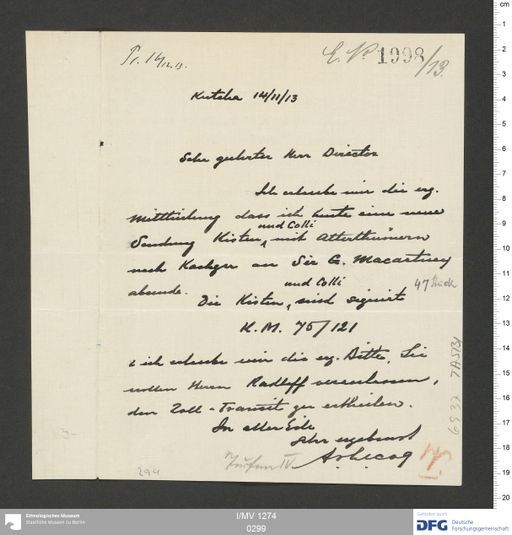 Pr. 14/12.13.
E. No 1998/13.
Kutscha 14/11/13
Sehr geehrter Herr Director
Ich erlaube mir die erg.
Mittheilung dass ich heute eine neue
Sendung Kisten und Colli mit Alterthümern
nach Kashgar an Sir G. Macartney
absende.
47 Stück
Die Kisten und Colli, sind signirt
K.M. 75/121
& ich erlaube mir die erg. Bitte, Sie
wollen Herrn Radloff veranlassen,
den Zoll-Transit zu ertheilen.
In aller Eile
sehr ergebenst
A v Lecoq
Turfan IV.
294
Ethnologisches Museum
Staatliche Museen zu Berlin
I/MV 1274
0299
Gefördert durch
DFG Deutsche
Forschungsgemeinschaft
cm
1
2
3
4
5
6
7
8
9
10
11
12
13
14
15
16
17
18
19
20